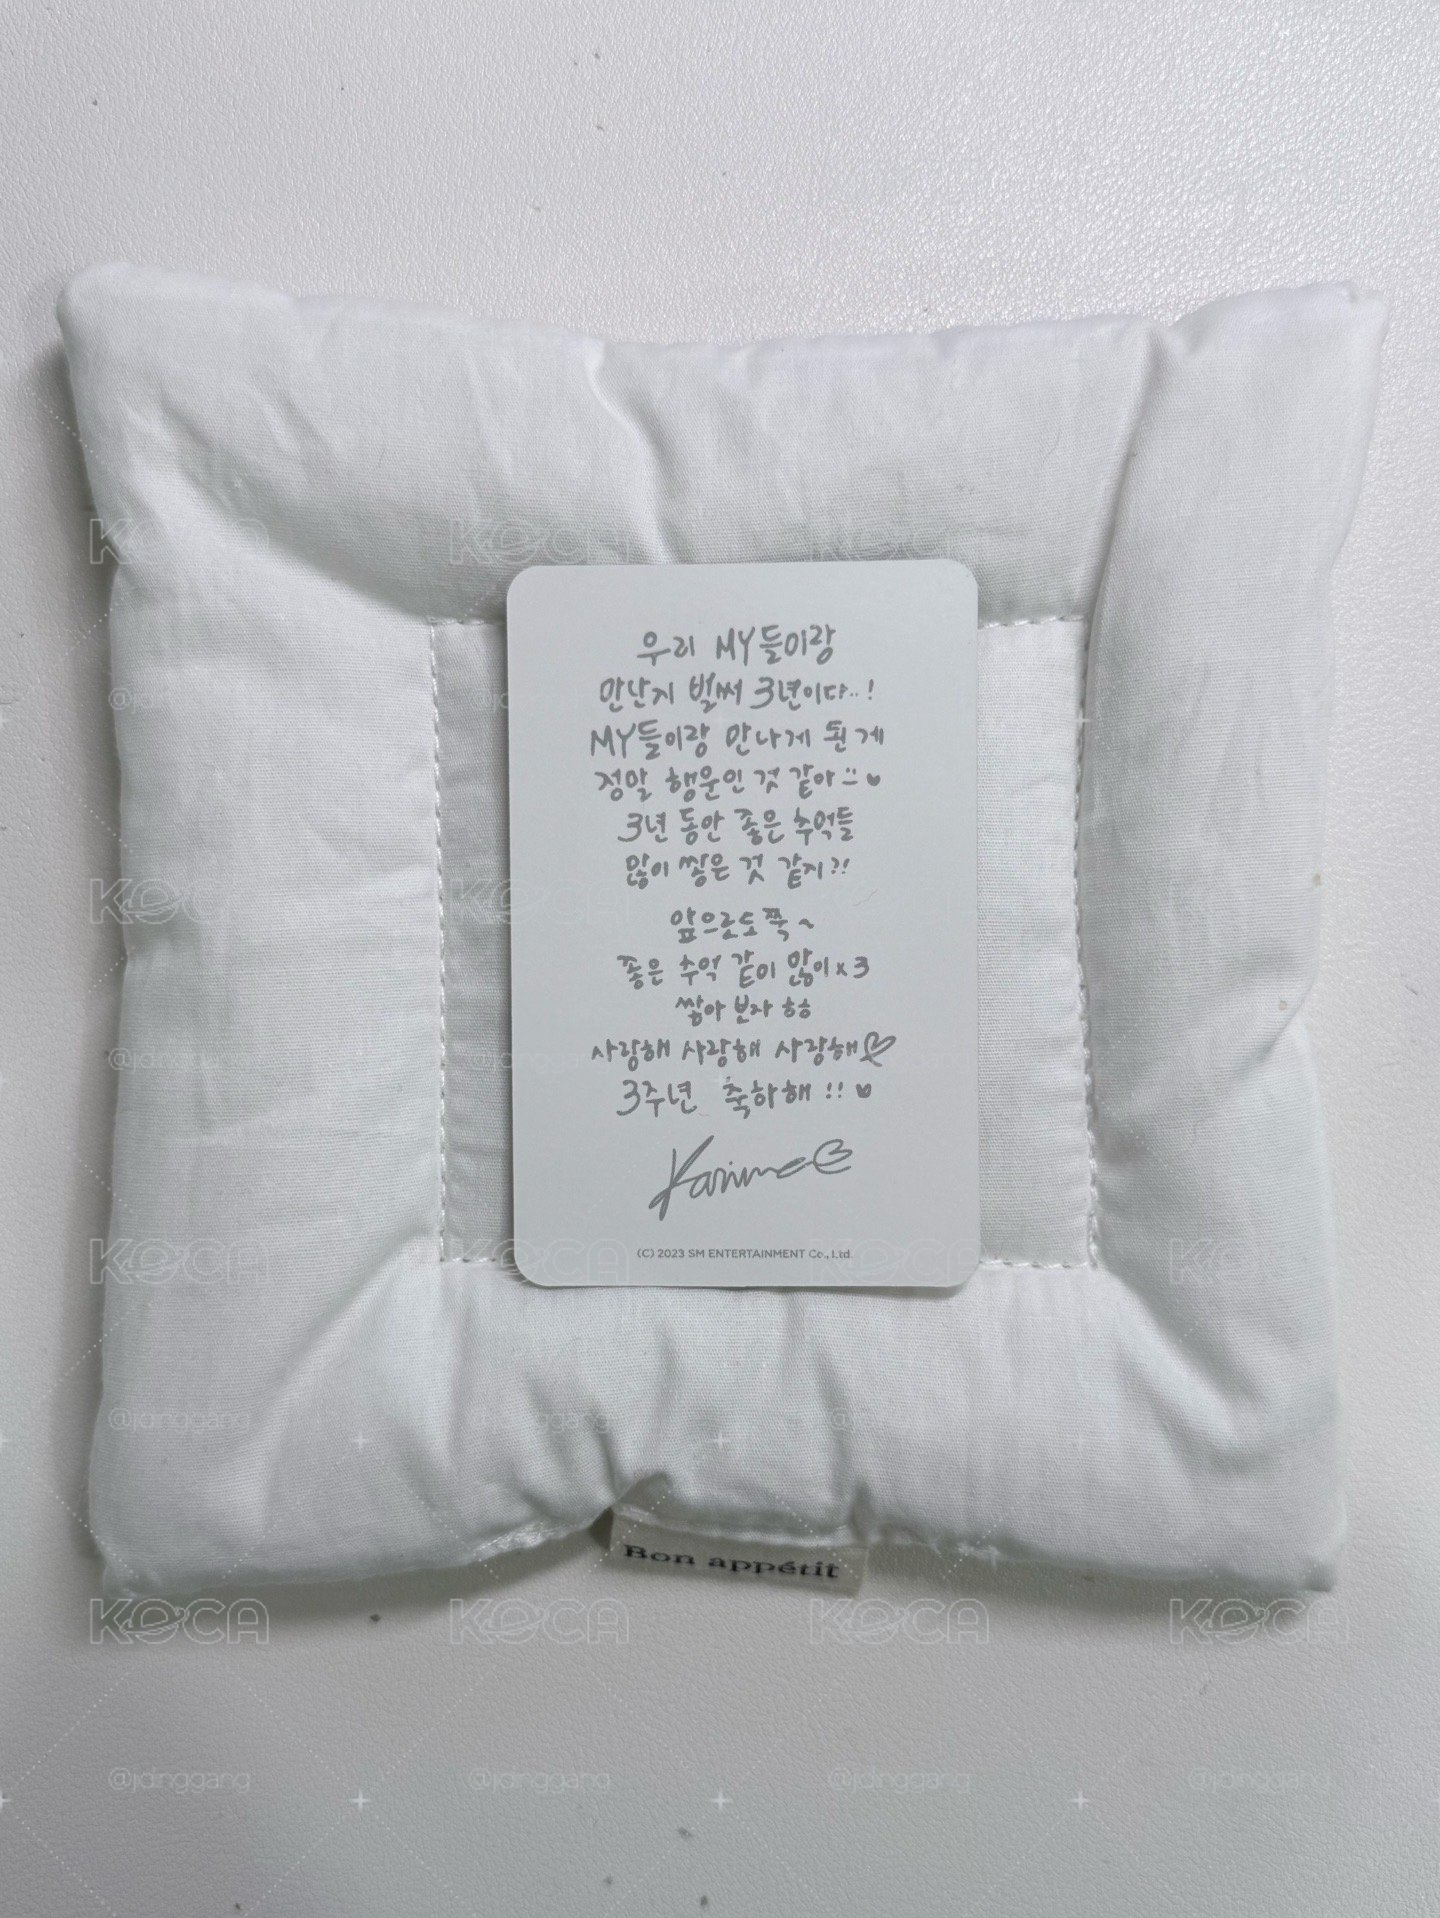 우리 MY들이랑
만난지 벌써 3년이다..!
MY들이랑 만나게 된 게
정말 행운인 것 같아 :: ♥
3년 동안 좋은 추억들
많이 쌓은 것 같지?!
앞으로도 쭉~
좋은 추억 같이 많이x3
쌓아 보자 ㅎㅎ
사랑해 사랑해 사랑해♡
3주년 축하해!! ♥
Karina
(C) 2023 SM ENTERTAINMENT Co., Ltd.
Bon appétit
KOCA
@jdinggang